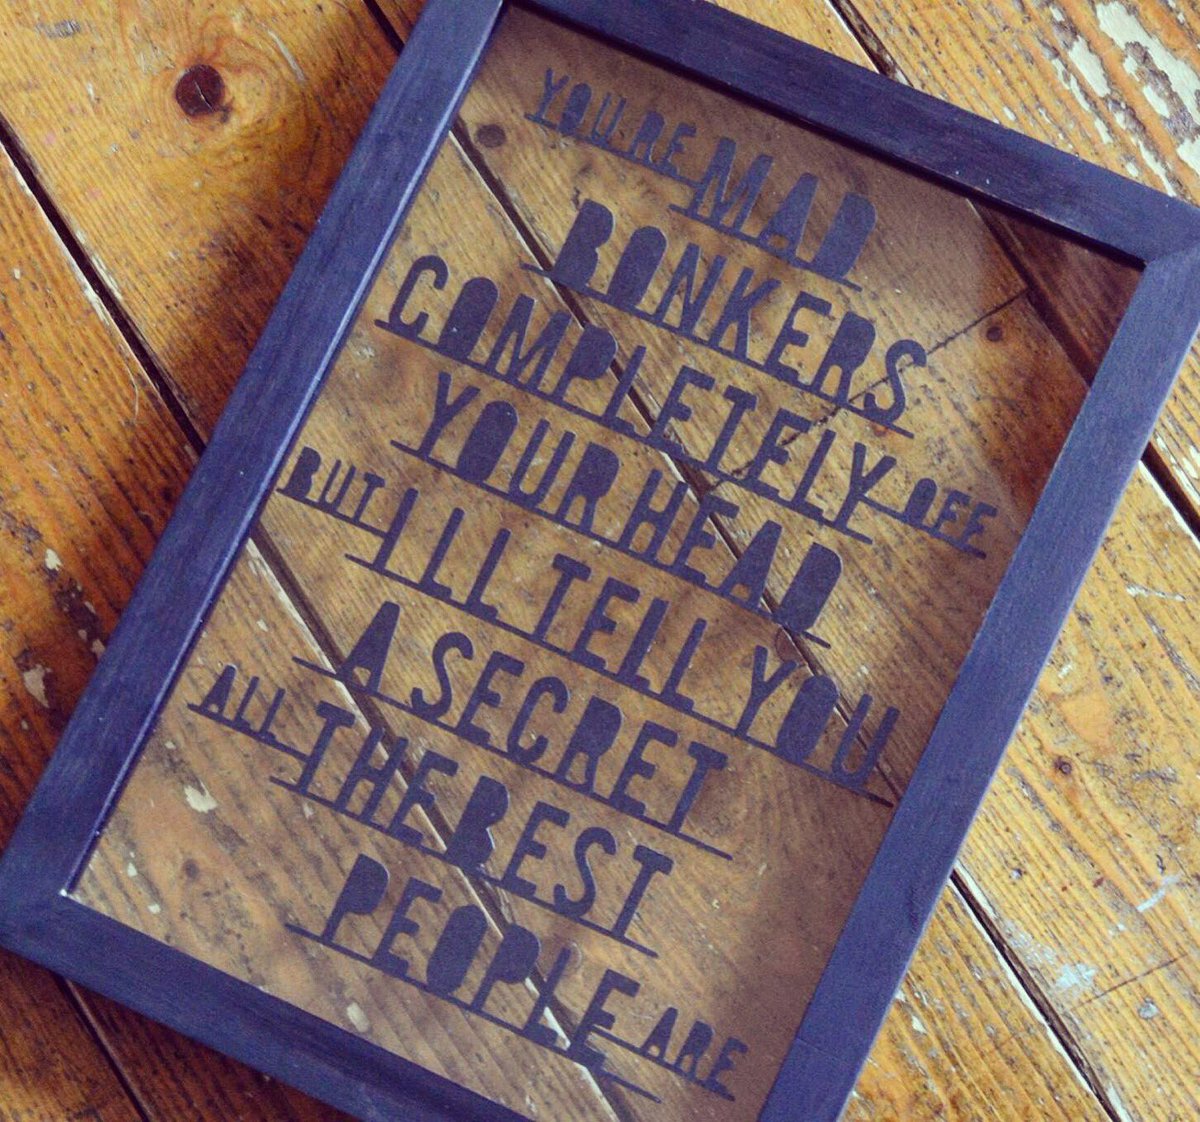 YOU'RE MAD
BONKERS
COMPLETELY OFF
YOUR HEAD
BUT I LL TELL YOU
A SECRET
ALL THE BEST
PEOPLE ARE